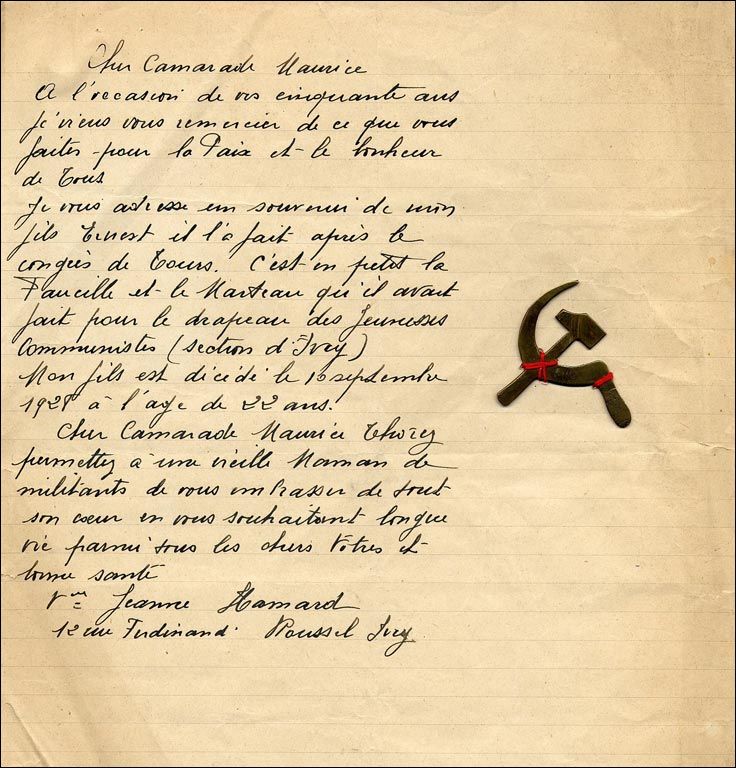 Cher Camarade Maurice
A l'occasion de vos cinquante ans
je viens vous remercier de ce que vous
faites pour la Paix et le bonheur
de Tous
Je vous adresse un souvenir de mon
fils Ernest il l'a fait après le
congrès de Tours. C'est en petit la
Faucille et le Marteau qu'il avait
fait pour le drapeau des Jeunesses
Communistes (section d'Ivry)
Mon fils est décédé le 10 septembre
1928 à l'age de 22 ans.
Cher Camarade Maurice Thorez
permettez à une vieille Maman de
militants de vous embrasser de tout
son cœur en vous souhaitant longue
vie parmi tous les chers Vôtres et
bonne santé
Vve Jeanne Hamard
12 rue Ferdinand Roussel Ivry